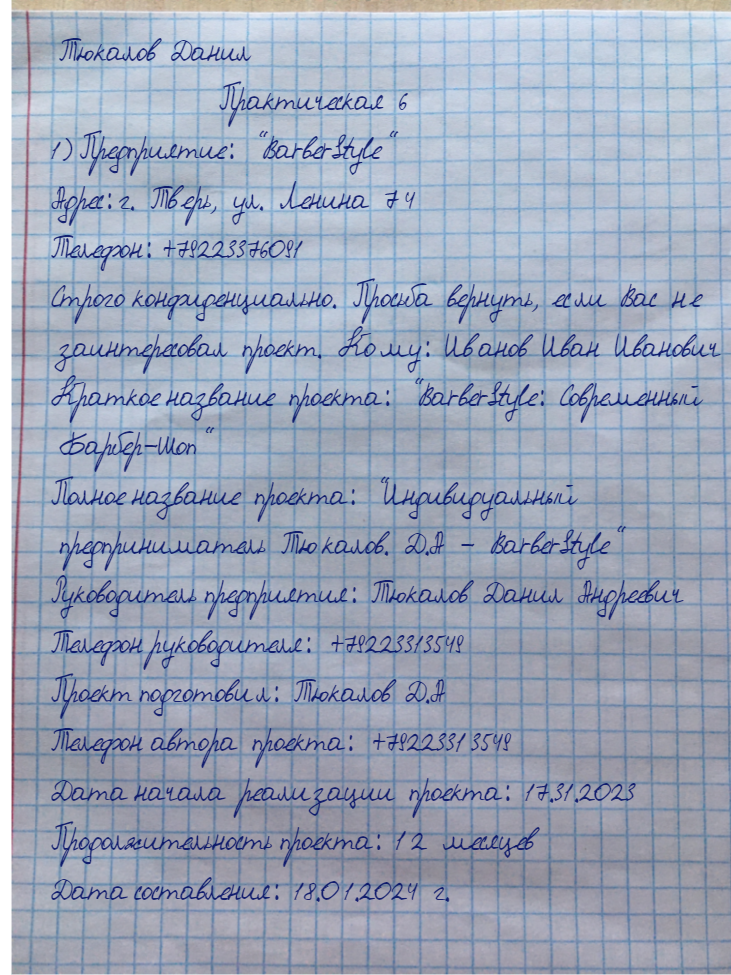 Тюкалов Данил
Практическая 6
1) Предприятие: "BarberStyle"
Адрес: г. Тверь, ул. Ленина 74
Телефон: +79223376091
Строго конфиденциально. Просьба вернуть, если Вас не
заинтересовал проект. Кому: Иванов Иван Иванович
Краткое название проекта: "BarberStyle: Современный
Барбер-Шоп"
Полное название проекта: "Индивидуальный
предприниматель Тюкалов. Д.А - BarberStyle"
Руководитель предприятия: Тюкалов Данил Андреевич
Телефон руководителя: +79223313549
Проект подготовил: Тюкалов Д.А
Телефон автора проекта: +79223313549
Дата начала реализации проекта: 17.31.2023
Продолжительность проекта: 12 месяцев
Дата составления: 18.01.2024 г.